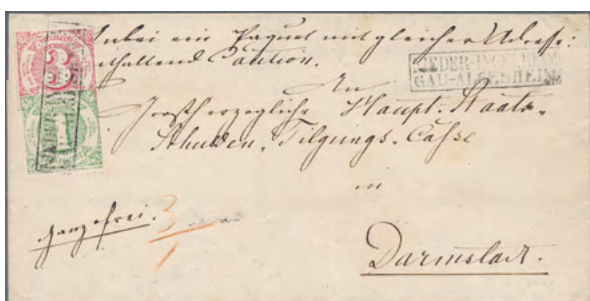 Anbei ein Paquet mit gleicher Adresse:
enthaltend Caution.
NIEDER-INGELHEIM
GAU-ALGESHEIM
An
Grosherzogliche Haupt-Staats-
Schulden-Tilgungs-Casse
in
ganz frei.
3
1
Darmstadt.
3
1